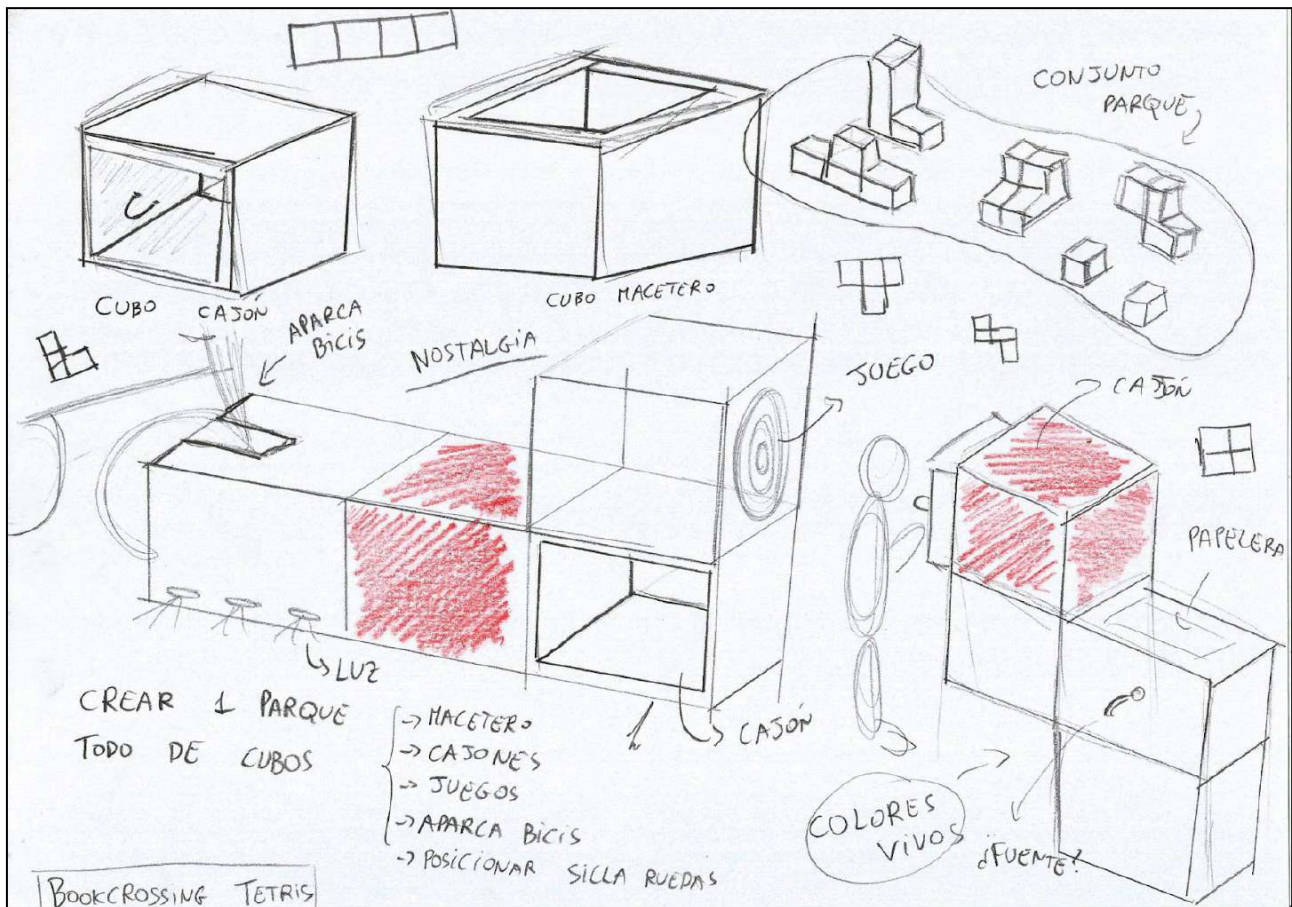 CONJUNTO
PARQUE
CUBO CAJÓN
CUBO MACETERO
APARCA
BICIS
NOSTALGIA
JUEGO
CAJÓN
PAPELERA
LUZ
CAJÓN
CREAR 1 PARQUE
TODO DE CUBOS
-> MACETERO
-> CAJONES
-> JUEGOS
-> APARCA BICIS
-> POSICIONAR SILLA RUEDAS
COLORES
VIVOS
¿FUENTE?
BOOKCROSSING TETRIS